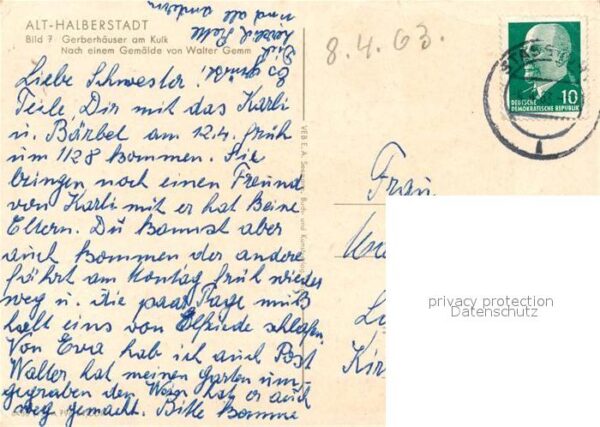 ALT-HALBERSTADT
Bild 7 Gerberhäuser am Kulk
Nach einem Gemälde von Walter Gemm
8.4.63.
DEUTSCHE
DEMOKRATISCHE REPUBLIK
10
Liebe Schwester!
Teile Dir mit das Karli
u. Bärbel am 12.4. früh
um 1128 kommen. Sie
bringen noch einen Freund
von Karli mit er hat keine
Eltern. Du kannst aber
auch kommen der andere
fährt am Montag früh wieder
weg u. die paar Tage muß
halt eins von Elfriede schlafen
Von Eva hab ich auch Post
Walter hat meinen Garten um
gegraben den Weger hat er auch
weg gemacht. Bitte komme
Es grüßt
Dich
und all andern
Frau
VEB E. A.
Buch- und
privacy protection
Datenschutz